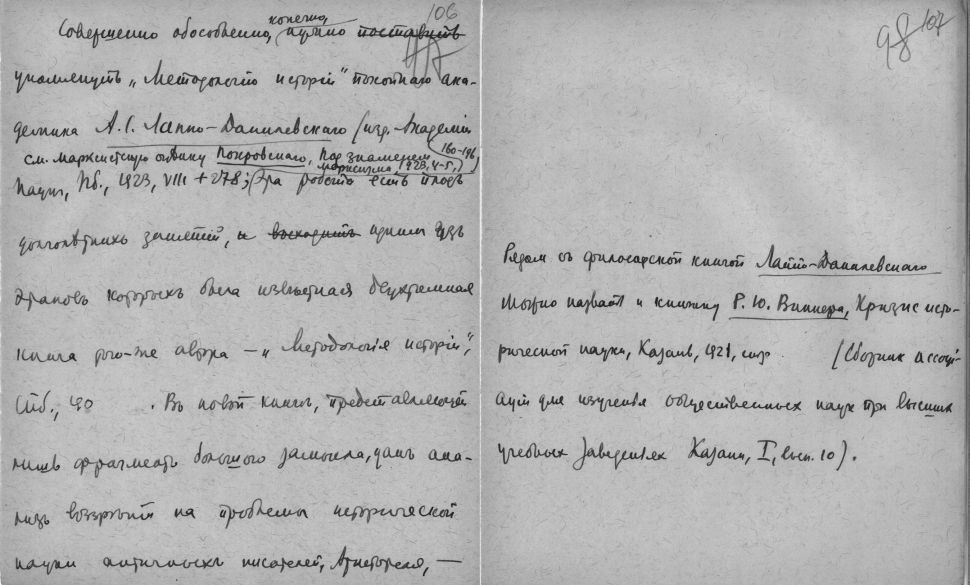 106
конечно,
Совершенно обособленно, нужно поставить
упомянуть „Методологію исторіи“ покойнаго ака-
демика А. С. Лаппо-Данилевскаго (изд. Академіи
см. марксистскую оценку Покровскаго, Под знаменем
марксизма, 1923, 4-5, 160-196)
Наук, Пб., 1923, VIII + 278; Эта работа есть плодъ
долголѣтнихъ занятій, и выходитъ однимъ изъ
этаповъ которыхъ была извѣстная двухтомная
книга того-же автора — „Методологія исторіи“,
Спб., 190 . Въ новой книгѣ, представляющей
лишь фрагментъ большого замысла, данъ ана-
лизъ воззрѣній на проблемы исторической
науки античныхъ писателей, Аристотеля, —
98 107
Рядом съ философской книгой Лаппо-Данилевскаго
можно назвать и книжку Р. Ю. Виппера, Кризис исто-
рической науки, Казань, 1921, стр. (Сборник ассоці-
аціи для изученія общественных наук при высших
учебных заведеніях Казани, I, вып. 10).